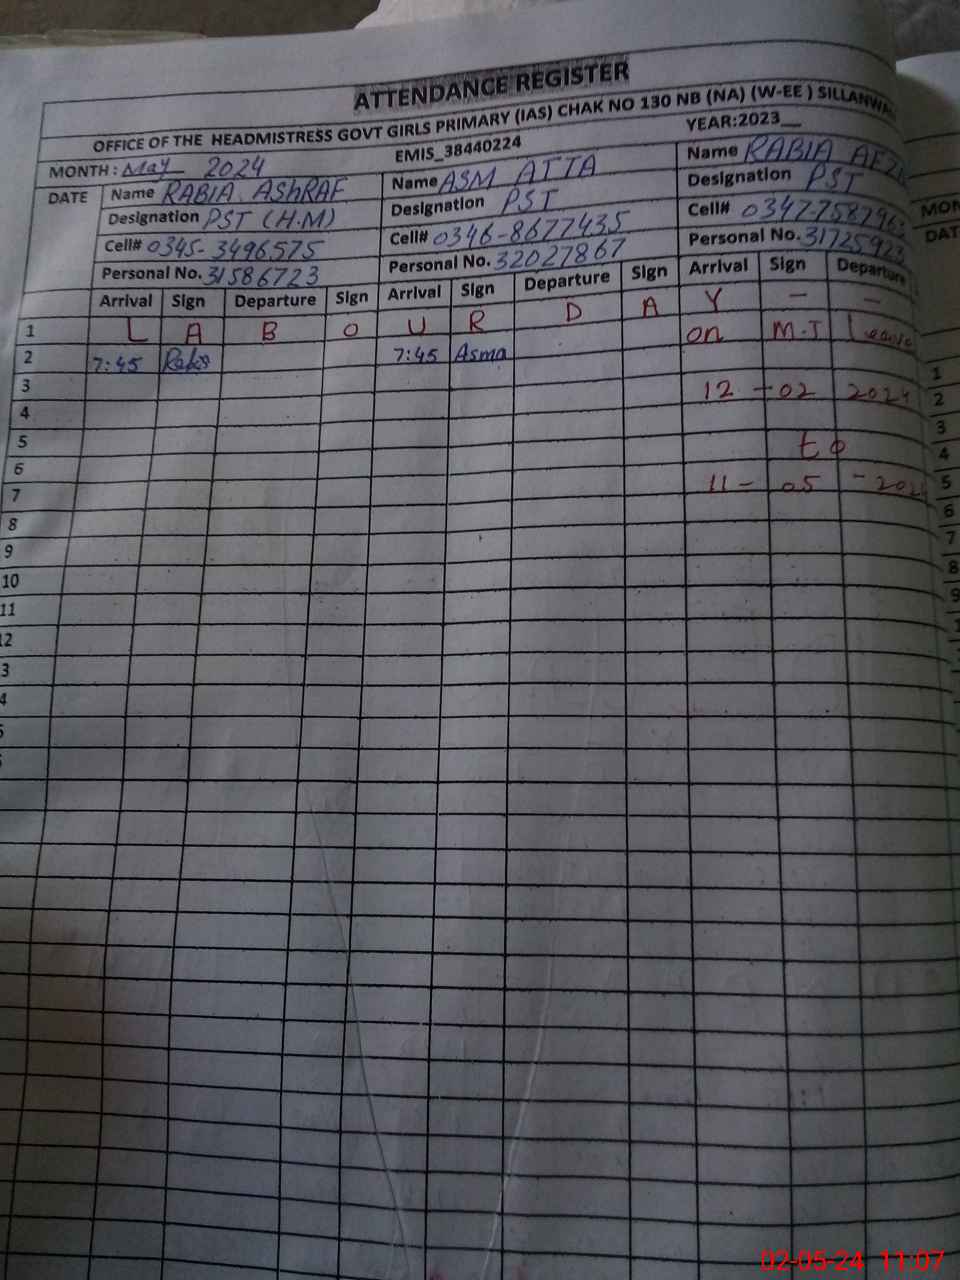 ATTENDANCE REGISTER
OFFICE OF THE HEADMISTRESS GOVT GIRLS PRIMARY (IAS) CHAK NO 130 NB (NA) (W-EE ) SILLANWA
MONTH: May 2024 EMIS_38440224 YEAR:2023__
DATE Name RABIA ASHRAF Name ASM ATTA Name RABIA
Designation PST (H.M) Designation PST Designation PST
Cell# 0345-3496575 Cell# 0346-8677435 Cell# 0347-7587963
Personal No. 31586723 Personal No. 32027867 Personal No. 31725923
Arrival Sign Departure Sign Arrival Sign Departure Sign Arrival Sign Departure
1 L A B O U R D A Y — —
2 7:45 7:45 Asma on M.T Leave
3 12 - 02 2024
4
5 to
6
7 11 - 05 - 202
8
9
10
11
12
3
4
5
MON
DAT
1
2
3
4
5
6
7
8
9
02-05-24 11:07